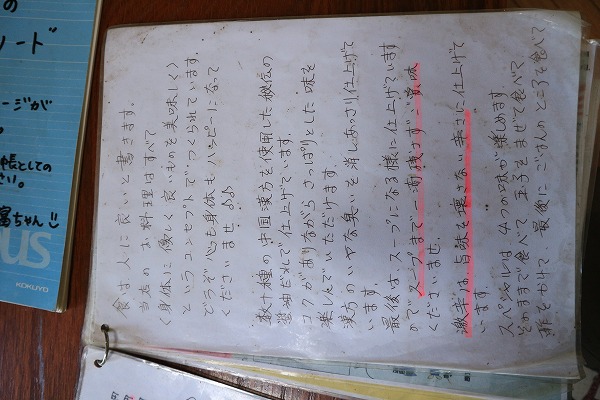 食は、人に良いと書きます。
当店のお料理はすべて
(身体に優しく良いものを美味しく)
というコンセプトでつくられています。
どうぞ心も身体もハッピーになって
くださいませ♪♪
数十種の中国漢方を使用した秘伝の
醤油だれで仕上げてます。
コクがありながらさっぱりとした味を
楽しんでいただけます。
漢方のいやな臭いを消しあっさり仕上げて
います。
最後は、スープになる様に仕上げています
のでスープまで一滴残さずご賞味
くださいませ。
激辛は、旨味を壊さない辛さに仕上げて
います。
スペシャルは、4つの味が楽しめます。
そのままで食べて、玉子をまぜて食べて、
酢をかけて、最後にごはんのところを食べて
の
ノード
ージが
帳としての
さい。
富ちゃん!!
pus
KOKUYO